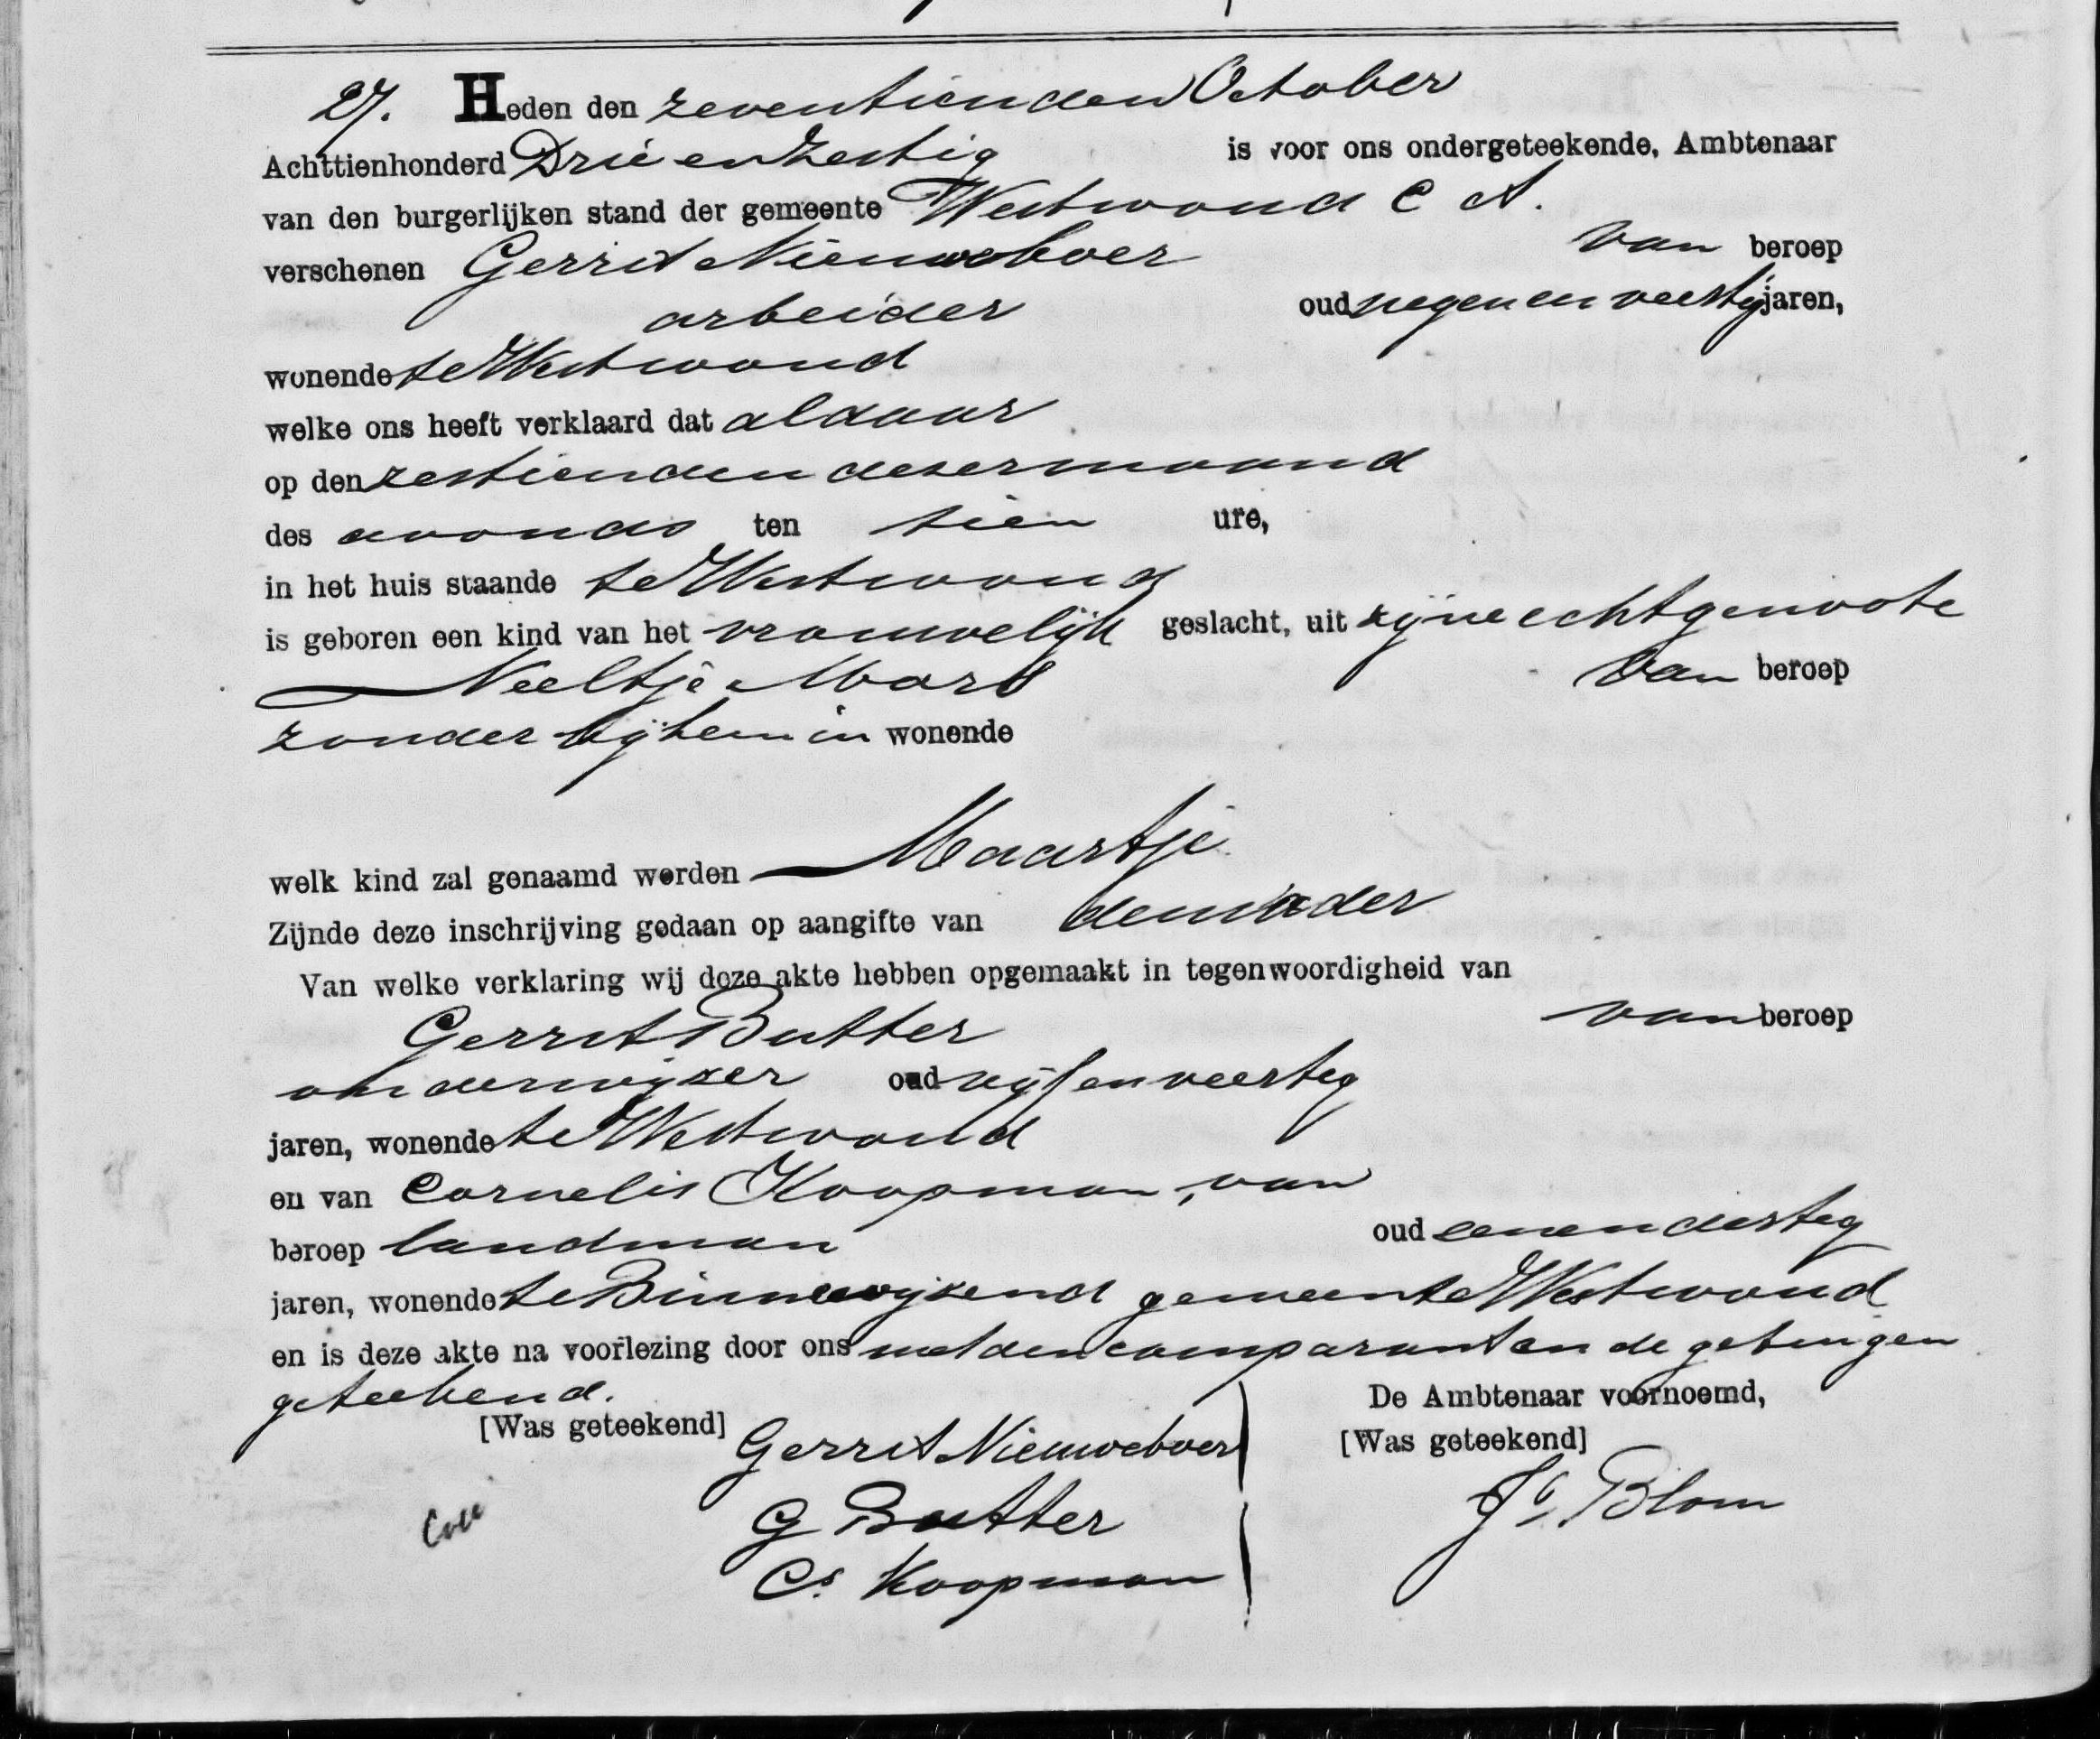 27. Heden den zeventienden October
Achttienhonderd Drie en Zestig is voor ons ondergeteekende, Ambtenaar
van den burgerlijken stand der gemeente Westwoud C A.
verschenen Gerrit Nieuweboer van beroep
arbeider oud negen en veertig jaren,
wonende te Westwoud
welke ons heeft verklaard dat aldaar
op den zestienden dezer maand
des avonds ten tien ure,
in het huis staande te Westwoud
is geboren een kind van het vrouwelijk geslacht, uit zijne echtgenoote
Neeltje Mars van beroep
zonder bij hem in wonende
welk kind zal genaamd worden Maartje
Zijnde deze inschrijving gedaan op aangifte van den vader
Van welke verklaring wij deze akte hebben opgemaakt in tegenwoordigheid van
Gerrit Butter van beroep
onderwijzer oud vijf en veertig
jaren, wonende te Westwoud
en van Cornelis Koopman, van
beroep landman oud een en dertig
jaren, wonende te Binnewijzend gemeente Westwoud
en is deze akte na voorlezing door ons met den comparant en de getuigen
geteekend. De Ambtenaar voornoemd,
[Was geteekend] Gerrit Nieuweboer [Was geteekend]
G Butter Js Blom
Cs Koopman